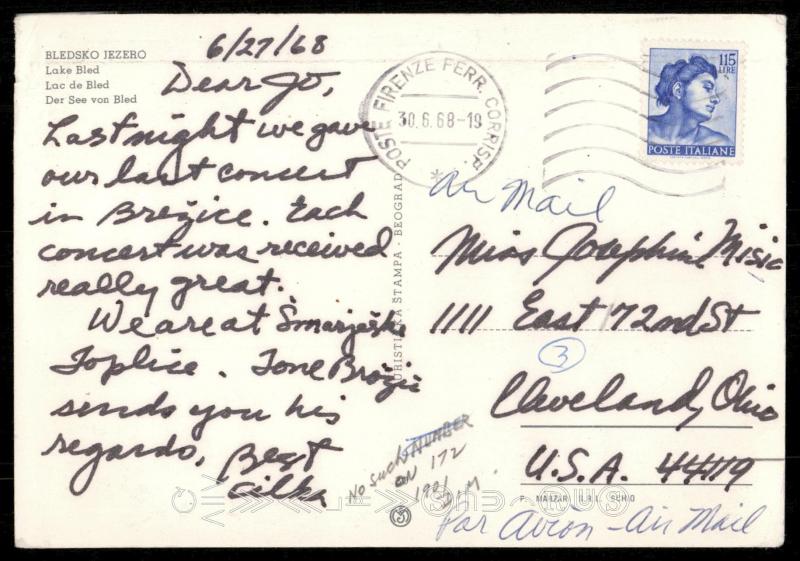 BLEDSKO JEZERO
Lake Bled
Lac de Bled
Der See von Bled
6/27/68
Dear Jo,
Last night we gave
our last concert
in Brežice. Each
concert was received
really great.
We are at Šmarješke
Toplice. Tone Brožič
sends you his
regards,
Best
Cilka
TURISTIČKA ŠTAMPA - BEOGRAD
POSTE FIRENZE FERR. CORRISP.
30.6.68-19
115
LIRE
POSTE ITALIANE
Air Mail
Miss Josephine Misic
1111 East 72nd St
3
Cleveland, Ohio
U.S.A. 44119
Par Avion - Air Mail
No such NUMBER
ON 172
D.M.